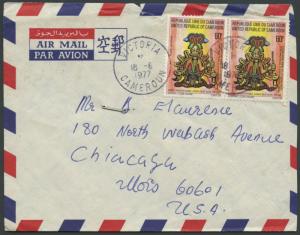 بالبريد الجوى
AIR MAIL 空郵
PAR AVION
VICTORIA
18-6
1977
CAMEROUN
REPUBLIQUE UNIE DU CAMEROUN
UNITED REPUBLIC OF CAMEROON
60F
REPUBLIQUE UNIE DU CAMEROUN
UNITED REPUBLIC OF CAMEROON
60F
Mr B Elaurence
180 North Wabash Avenue
Chiacaga
Illois 60601
U.S.A.